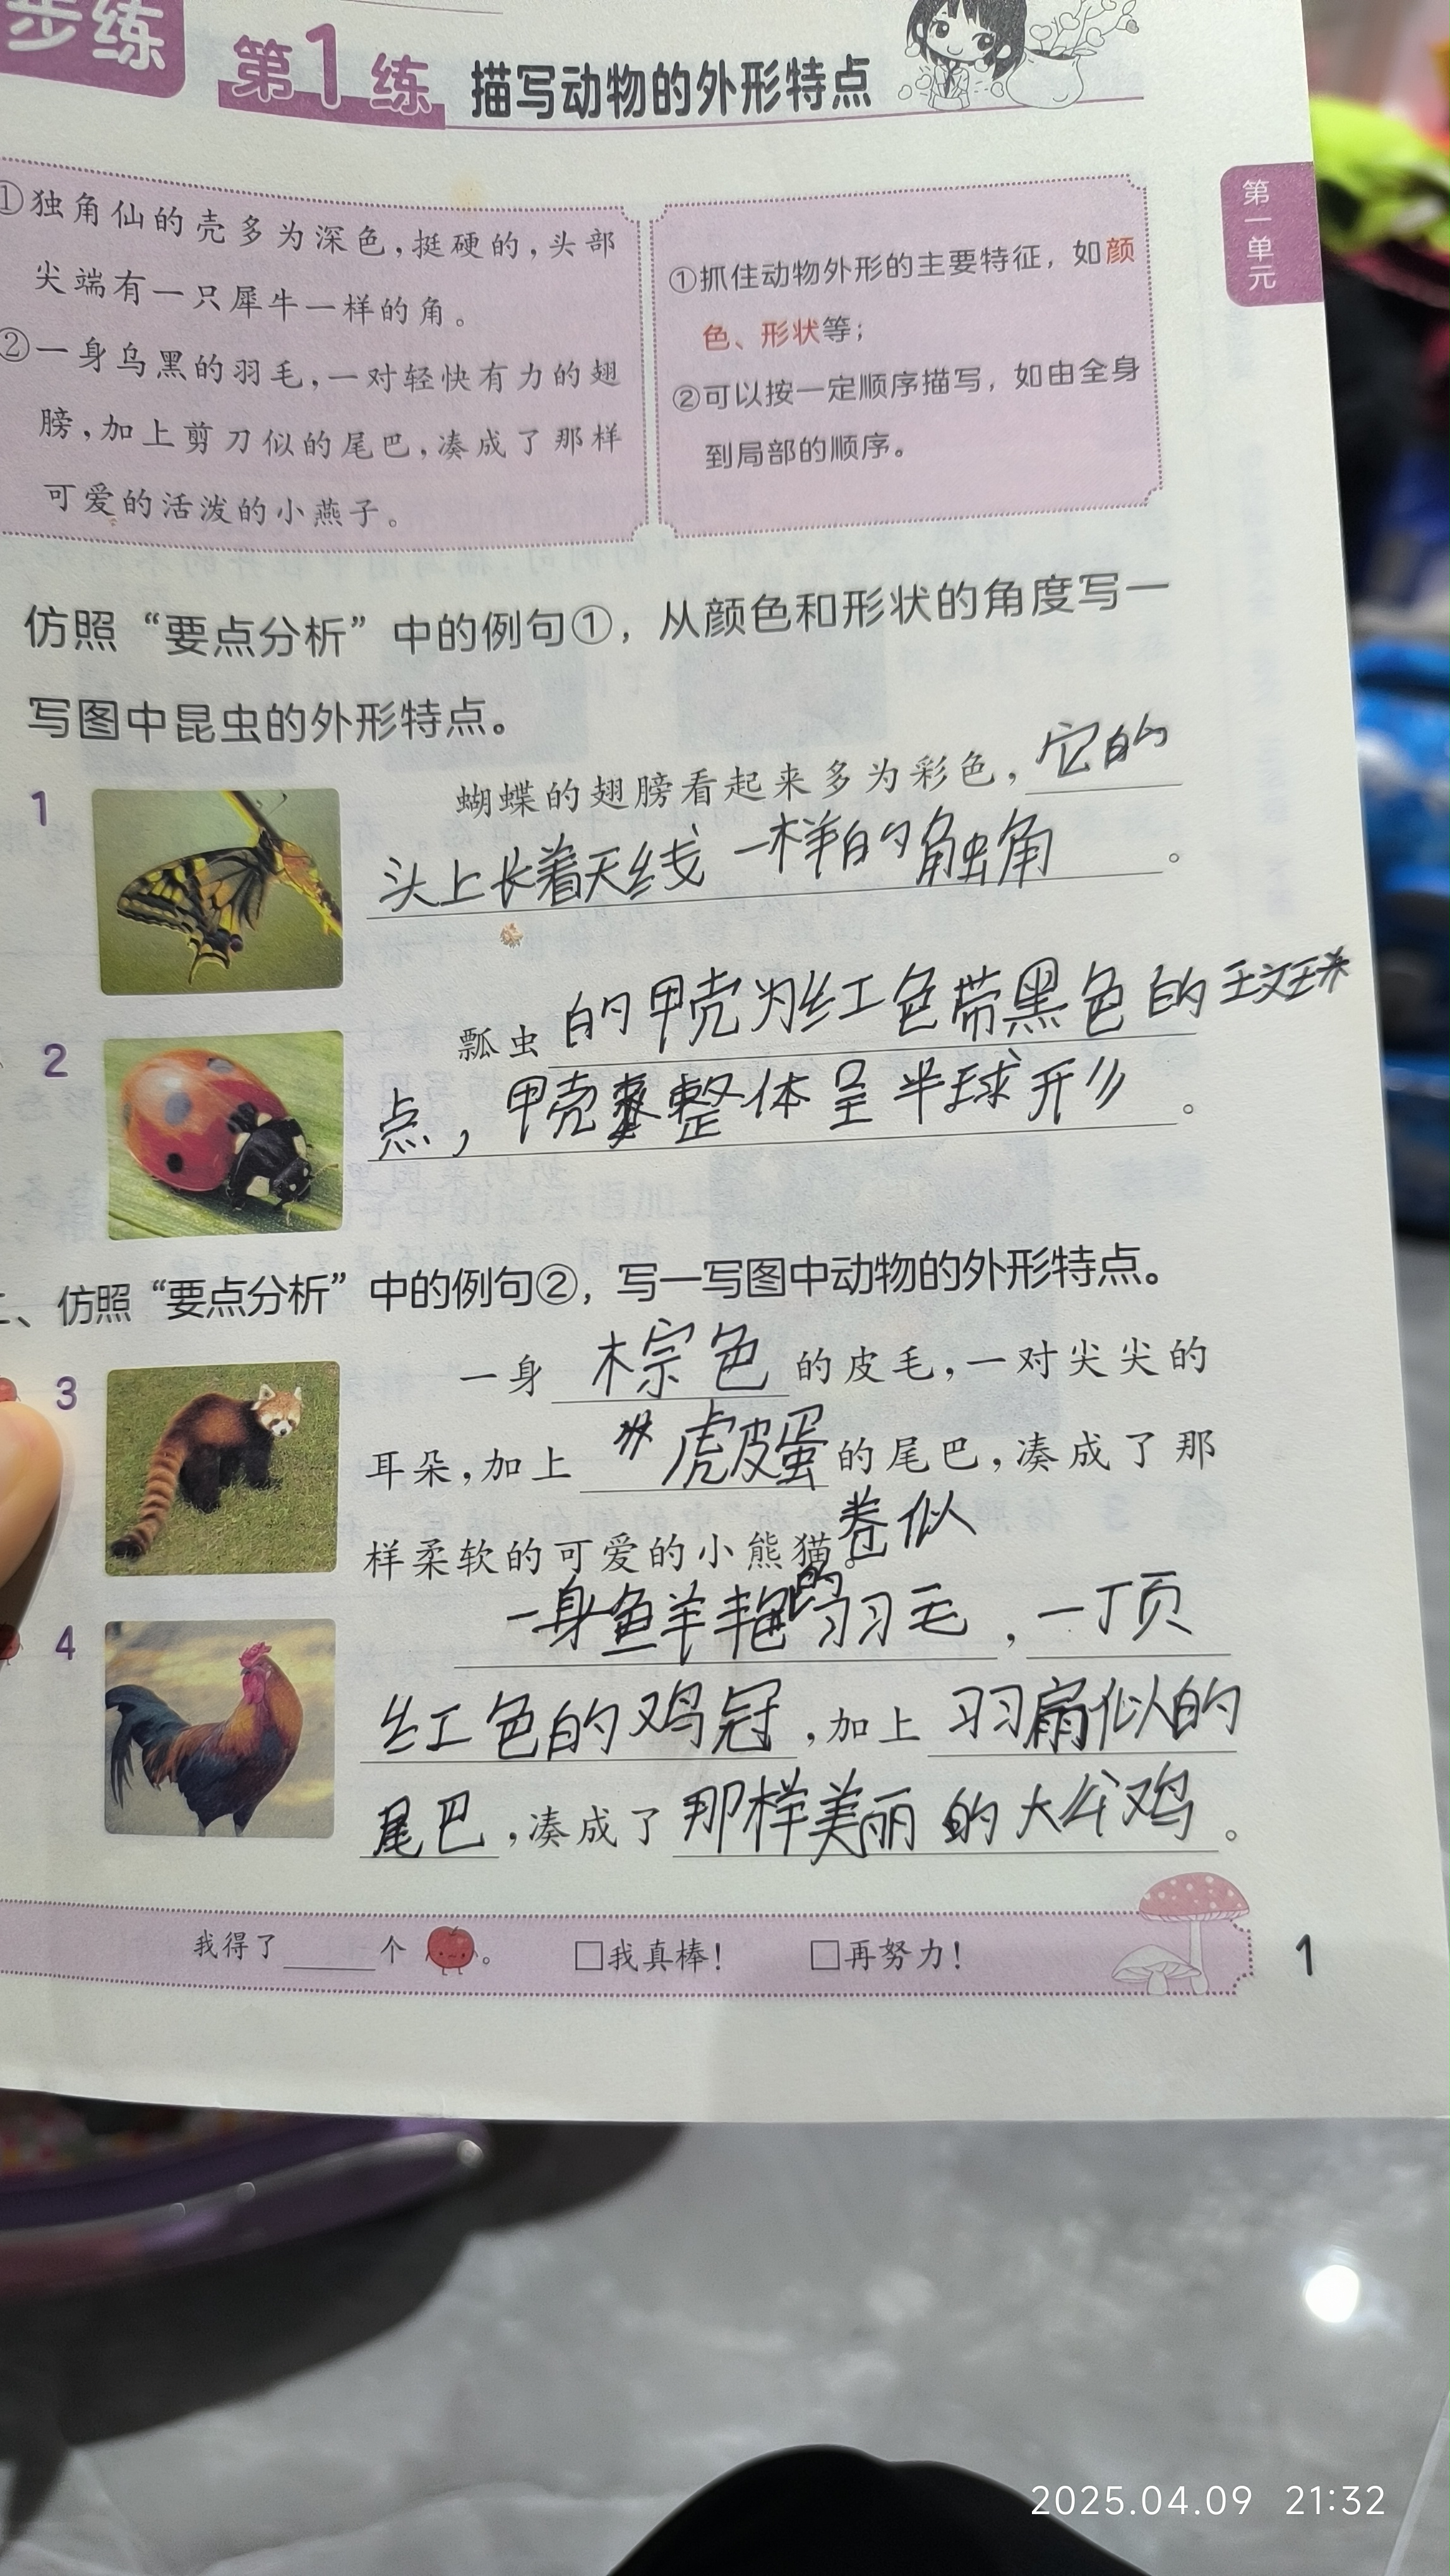 步练
第1练 描写动物的外形特点
第一单元
①独角仙的壳多为深色，挺硬的，头部
尖端有一只犀牛一样的角。
②一身乌黑的羽毛，一对轻快有力的翅
膀，加上剪刀似的尾巴，凑成了那样
可爱的活泼的小燕子。
①抓住动物外形的主要特征，如颜
色、形状等；
②可以按一定顺序描写，如由全身
到局部的顺序。
仿照“要点分析”中的例句①，从颜色和形状的角度写一
写图中昆虫的外形特点。
1 蝴蝶的翅膀看起来多为彩色，它的
头上长着天线一样的触角。
2 瓢虫的甲壳为红色带黑色的
点，甲壳整体呈半球形。
二、仿照“要点分析”中的例句②，写一写图中动物的外形特点。
3 一身棕色的皮毛，一对尖尖的
耳朵，加上虎皮蛋的尾巴，凑成了那
卷似
样柔软的可爱的小熊猫。
4 一身鲜艳的羽毛，一顶
红色的鸡冠，加上羽扇似的
尾巴，凑成了那样美丽的大公鸡。
我得了____个。 □我真棒！ □再努力！
1
2025.04.09 21:32